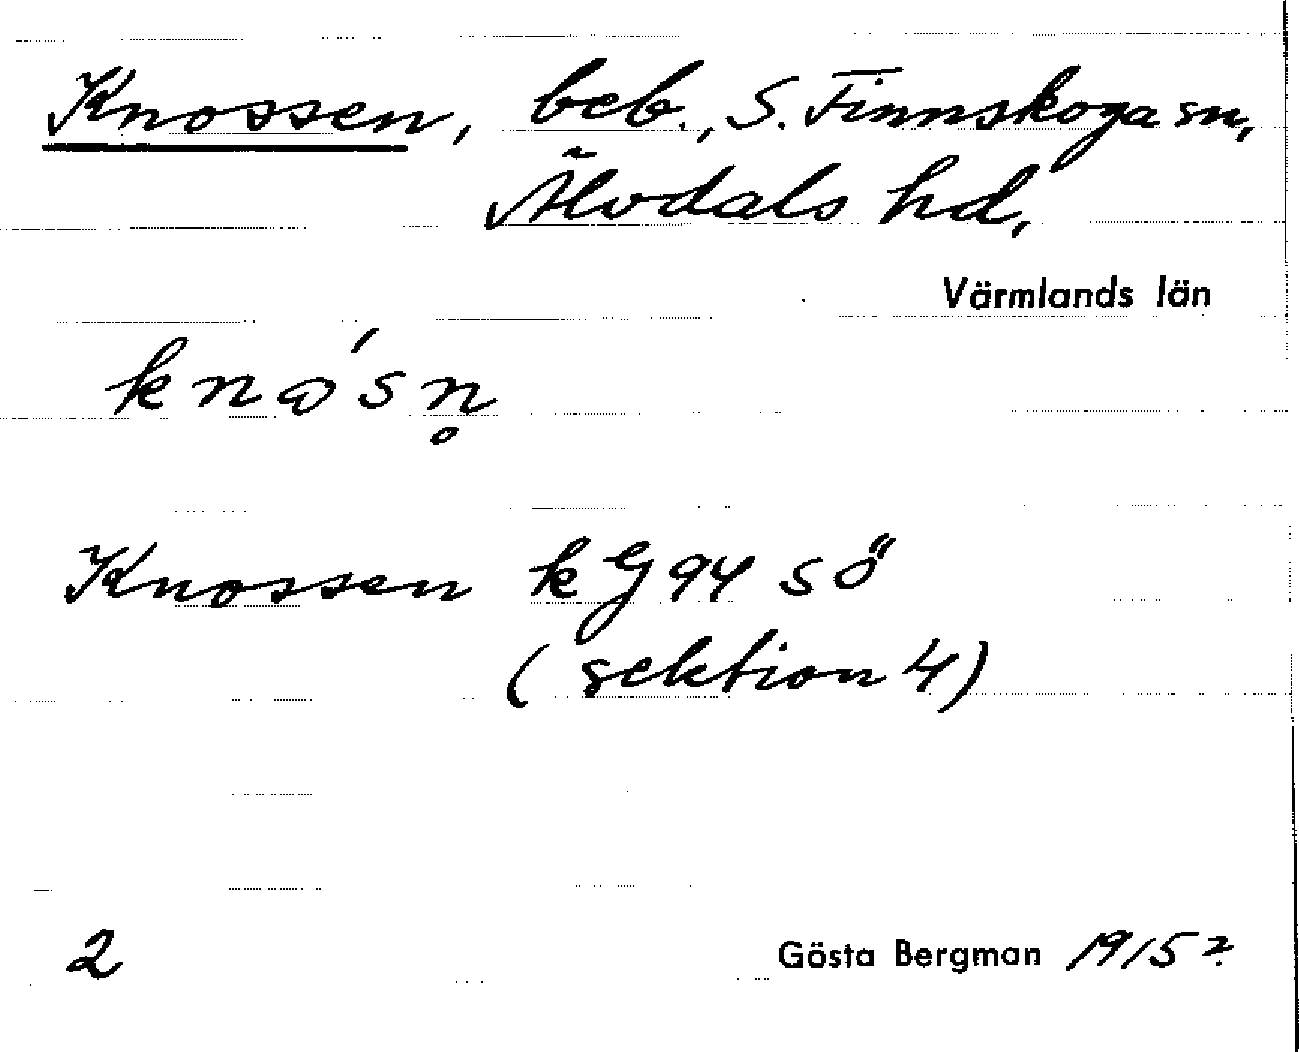 Knossen, beb., S. Finnskoga sn,
Älvdals hd,
Värmlands län
knɷ́sn̥
Knossen kG94 sö
(sektion 4)
2
Gösta Bergman 1915?